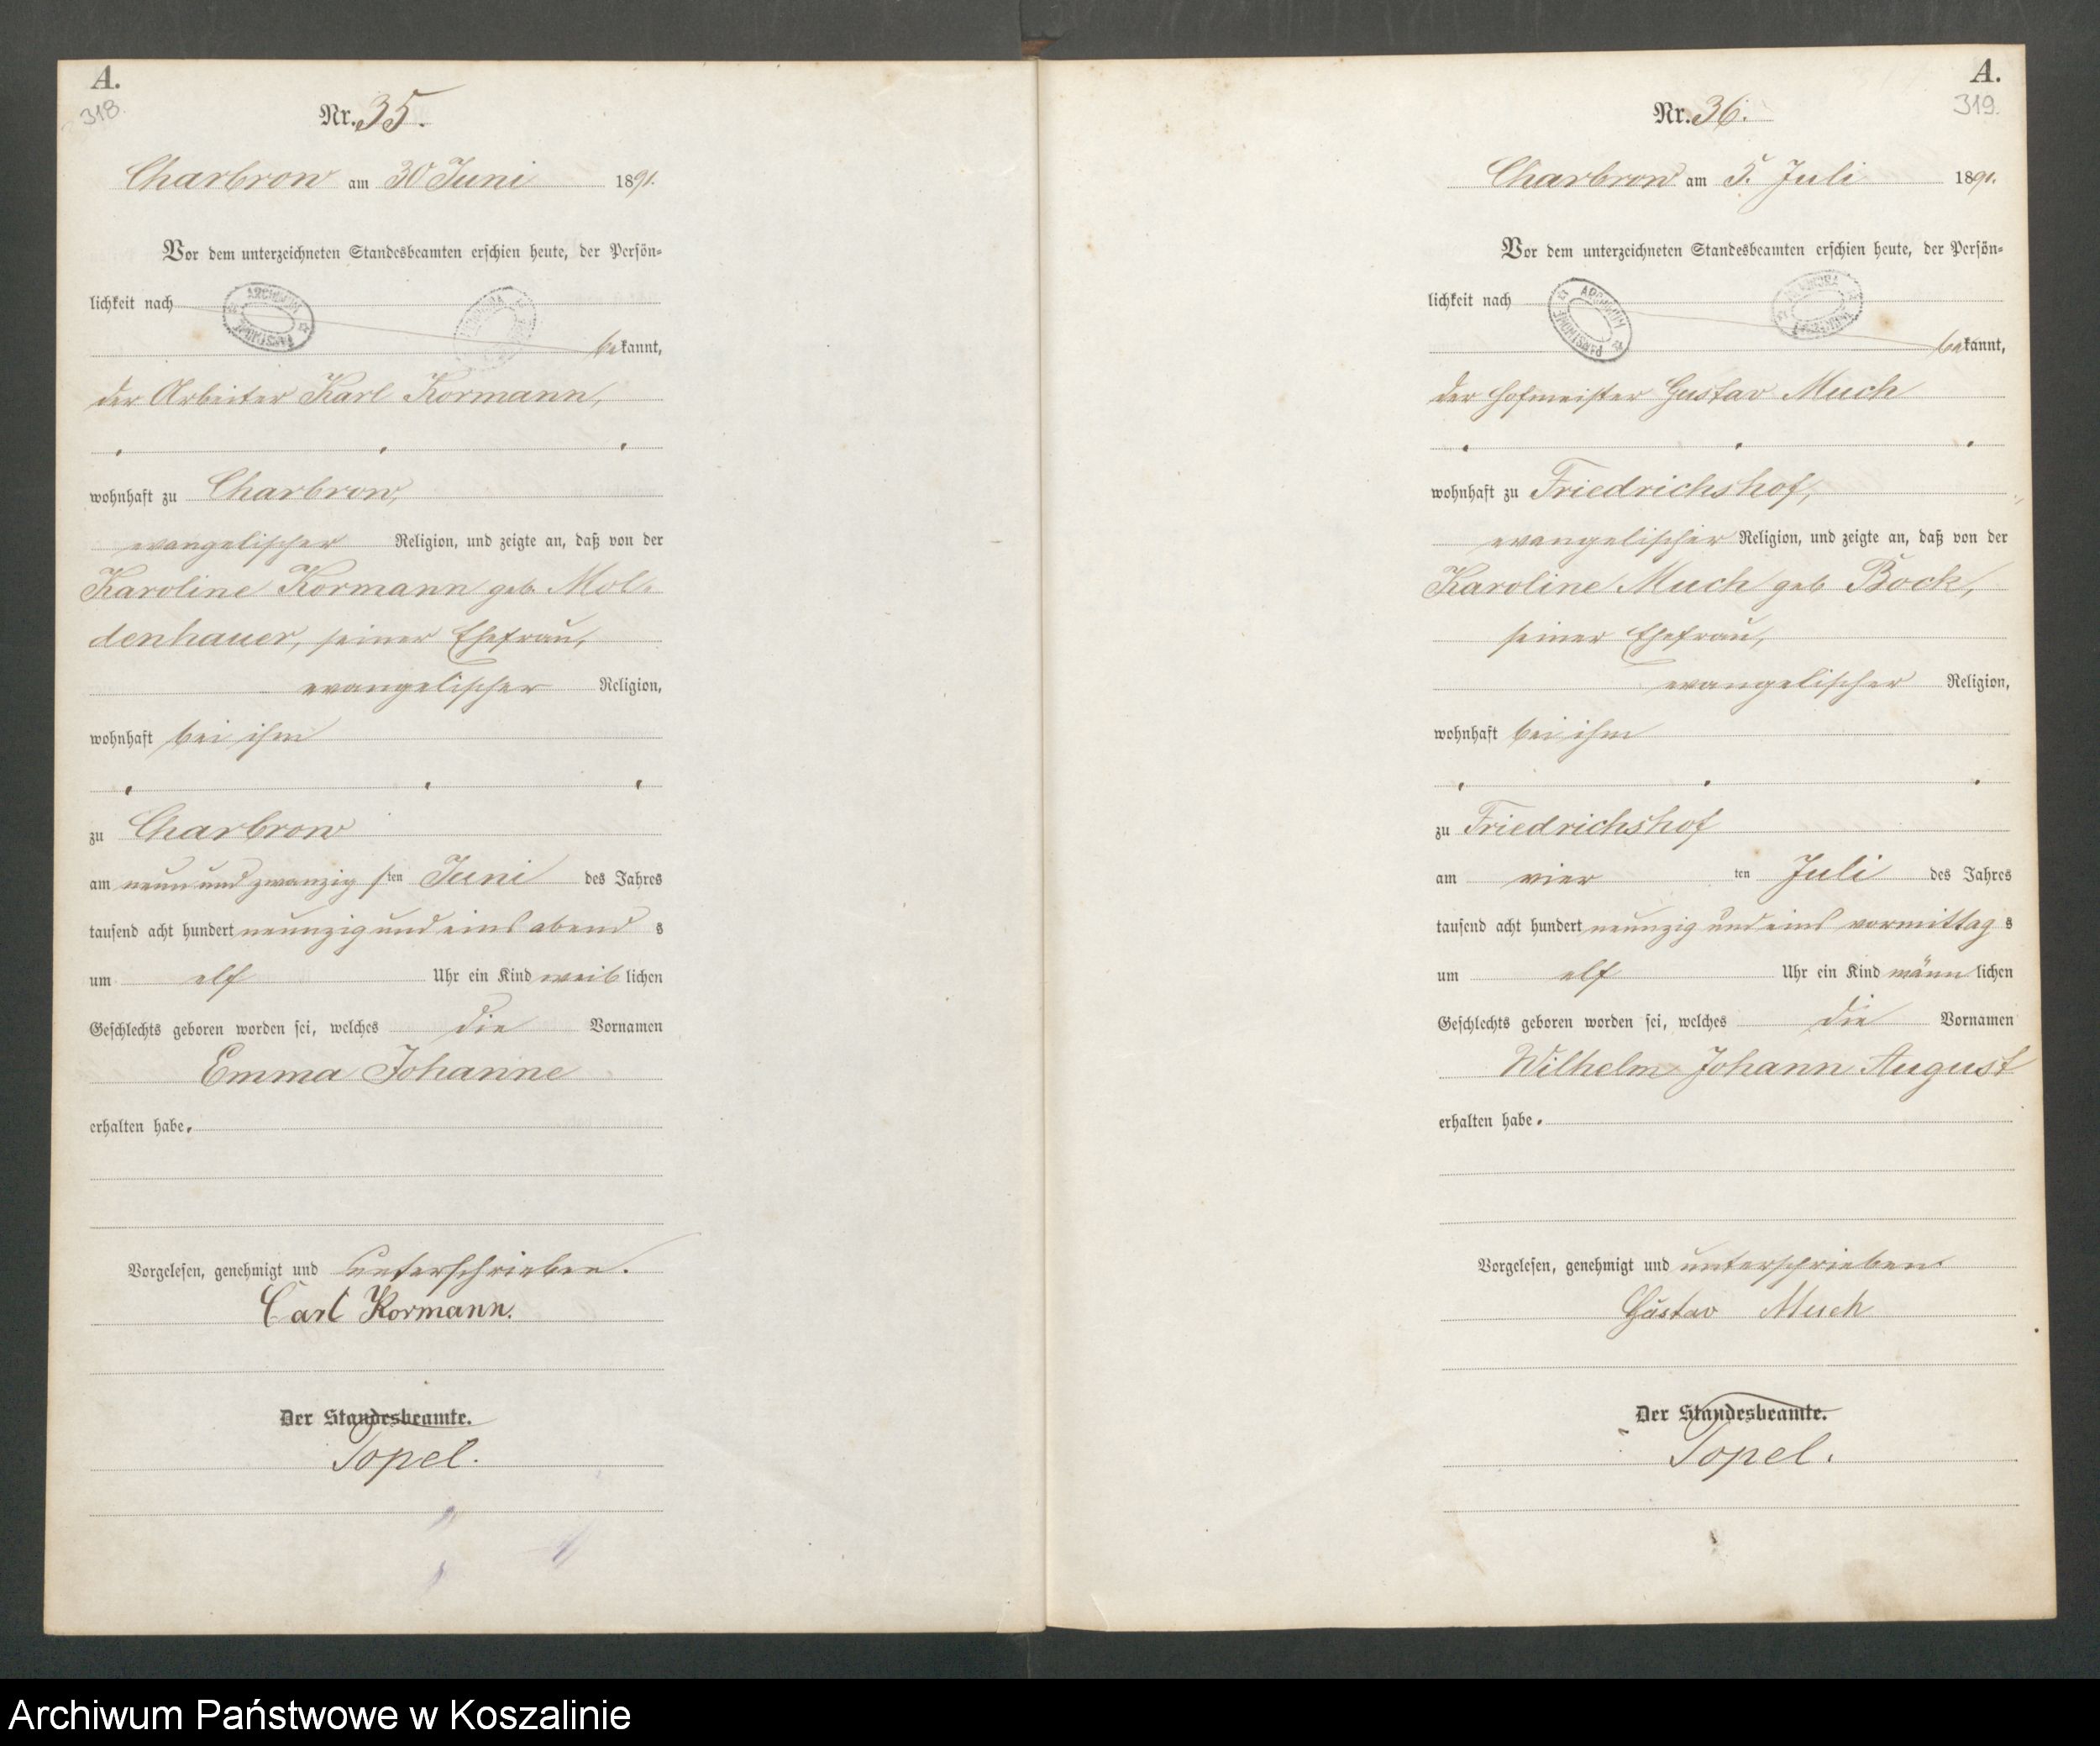 A.
318.
Nr. 35.
Charbrow am 30 Juni 1891.
Vor dem unterzeichneten Standesbeamten erschien heute, der Persön-
lichkeit nach
bekannt,
der Arbeiter Karl Kormann,
wohnhaft zu Charbrow,
evangelischer Religion, und zeigte an, daß von der
Karoline Kormann geb. Mol-
denhauer, seiner Ehefrau,
evangelischer Religion,
wohnhaft bei ihm
zu Charbrow
am neun und zwanzigsten Juni des Jahres
tausend acht hundert neunzig und eins abends
um elf Uhr ein Kind weiblichen
Geschlechts geboren worden sei, welches die Vornamen
Emma Johanne
erhalten habe.
Vorgelesen, genehmigt und unterschrieben.
Carl Kormann.
Der Standesbeamte.
Topel.
A.
319.
Nr. 36.
Charbrow am 5. Juli 1891.
Vor dem unterzeichneten Standesbeamten erschien heute, der Persön-
lichkeit nach
bekannt,
der Hofmeister Gustav Much
wohnhaft zu Friedrichshof,
evangelischer Religion, und zeigte an, daß von der
Karoline Much geb Bock,
seiner Ehefrau,
evangelischer Religion,
wohnhaft bei ihm
zu Friedrichshof
am vierten Juli des Jahres
tausend acht hundert neunzig und eins vormittags
um elf Uhr ein Kind männlichen
Geschlechts geboren worden sei, welches die Vornamen
Wilhelm Johann August
erhalten habe.
Vorgelesen, genehmigt und unterschrieben.
Gustav Much
Der Standesbeamte.
Topel.
Archiwum Państwowe w Koszalinie